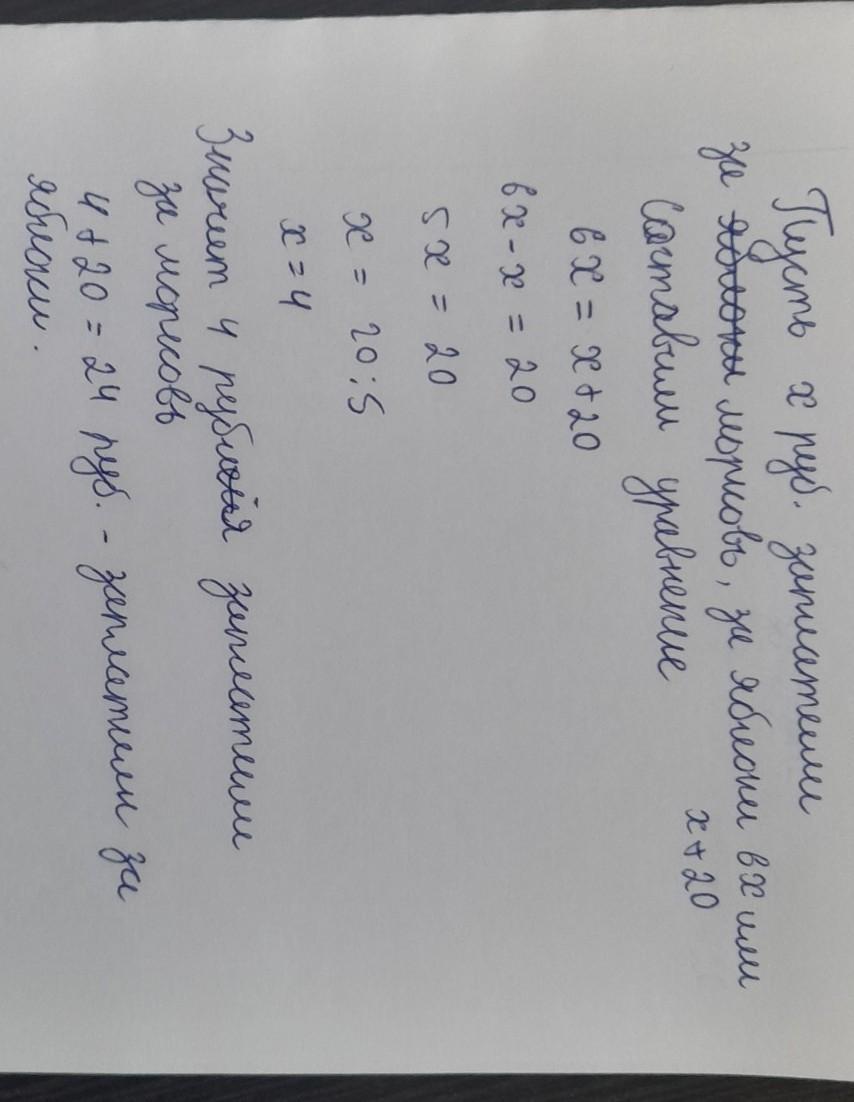 Пусть x руб. заплатили
за яблоки морковь, за яблоки 6x или
x+20
Составим уравнение
6x = x+20
6x-x = 20
5x = 20
x = 20:5
x=4
Значит 4 рубля заплатили
за морковь
4+20=24 руб. - заплатили за
яблоки.